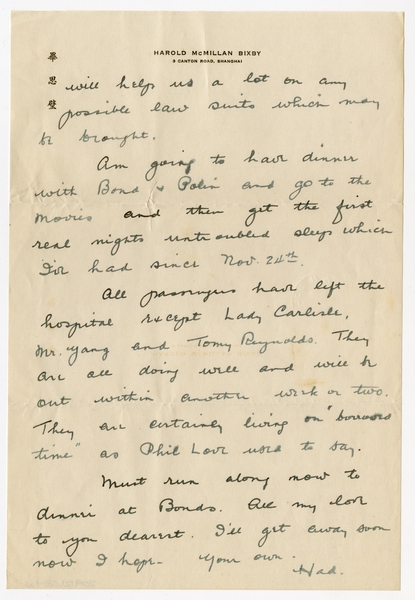 畢
思
璧
HAROLD McMILLAN BIXBY
3 CANTON ROAD, SHANGHAI
will helps us a lot on any
possible law suits which may
be brought.
Am going to have dinner
with Bond & Polin and go to the
movies and then get the first
real nights untroubled sleep which
I've had since Nov. 24th.
All passengers have left the
hospital except Lady Carlisle,
Mr. Yang and Tomy Reynolds. They
are all doing well and will be
out within another week or two.
They are certainly living on "borrowed
time" as Phil Love used to say.
Must run along now to
dinner at Bonds. All my love
to you dearest. I'll get away soon
now I hope - Your own.
Had.